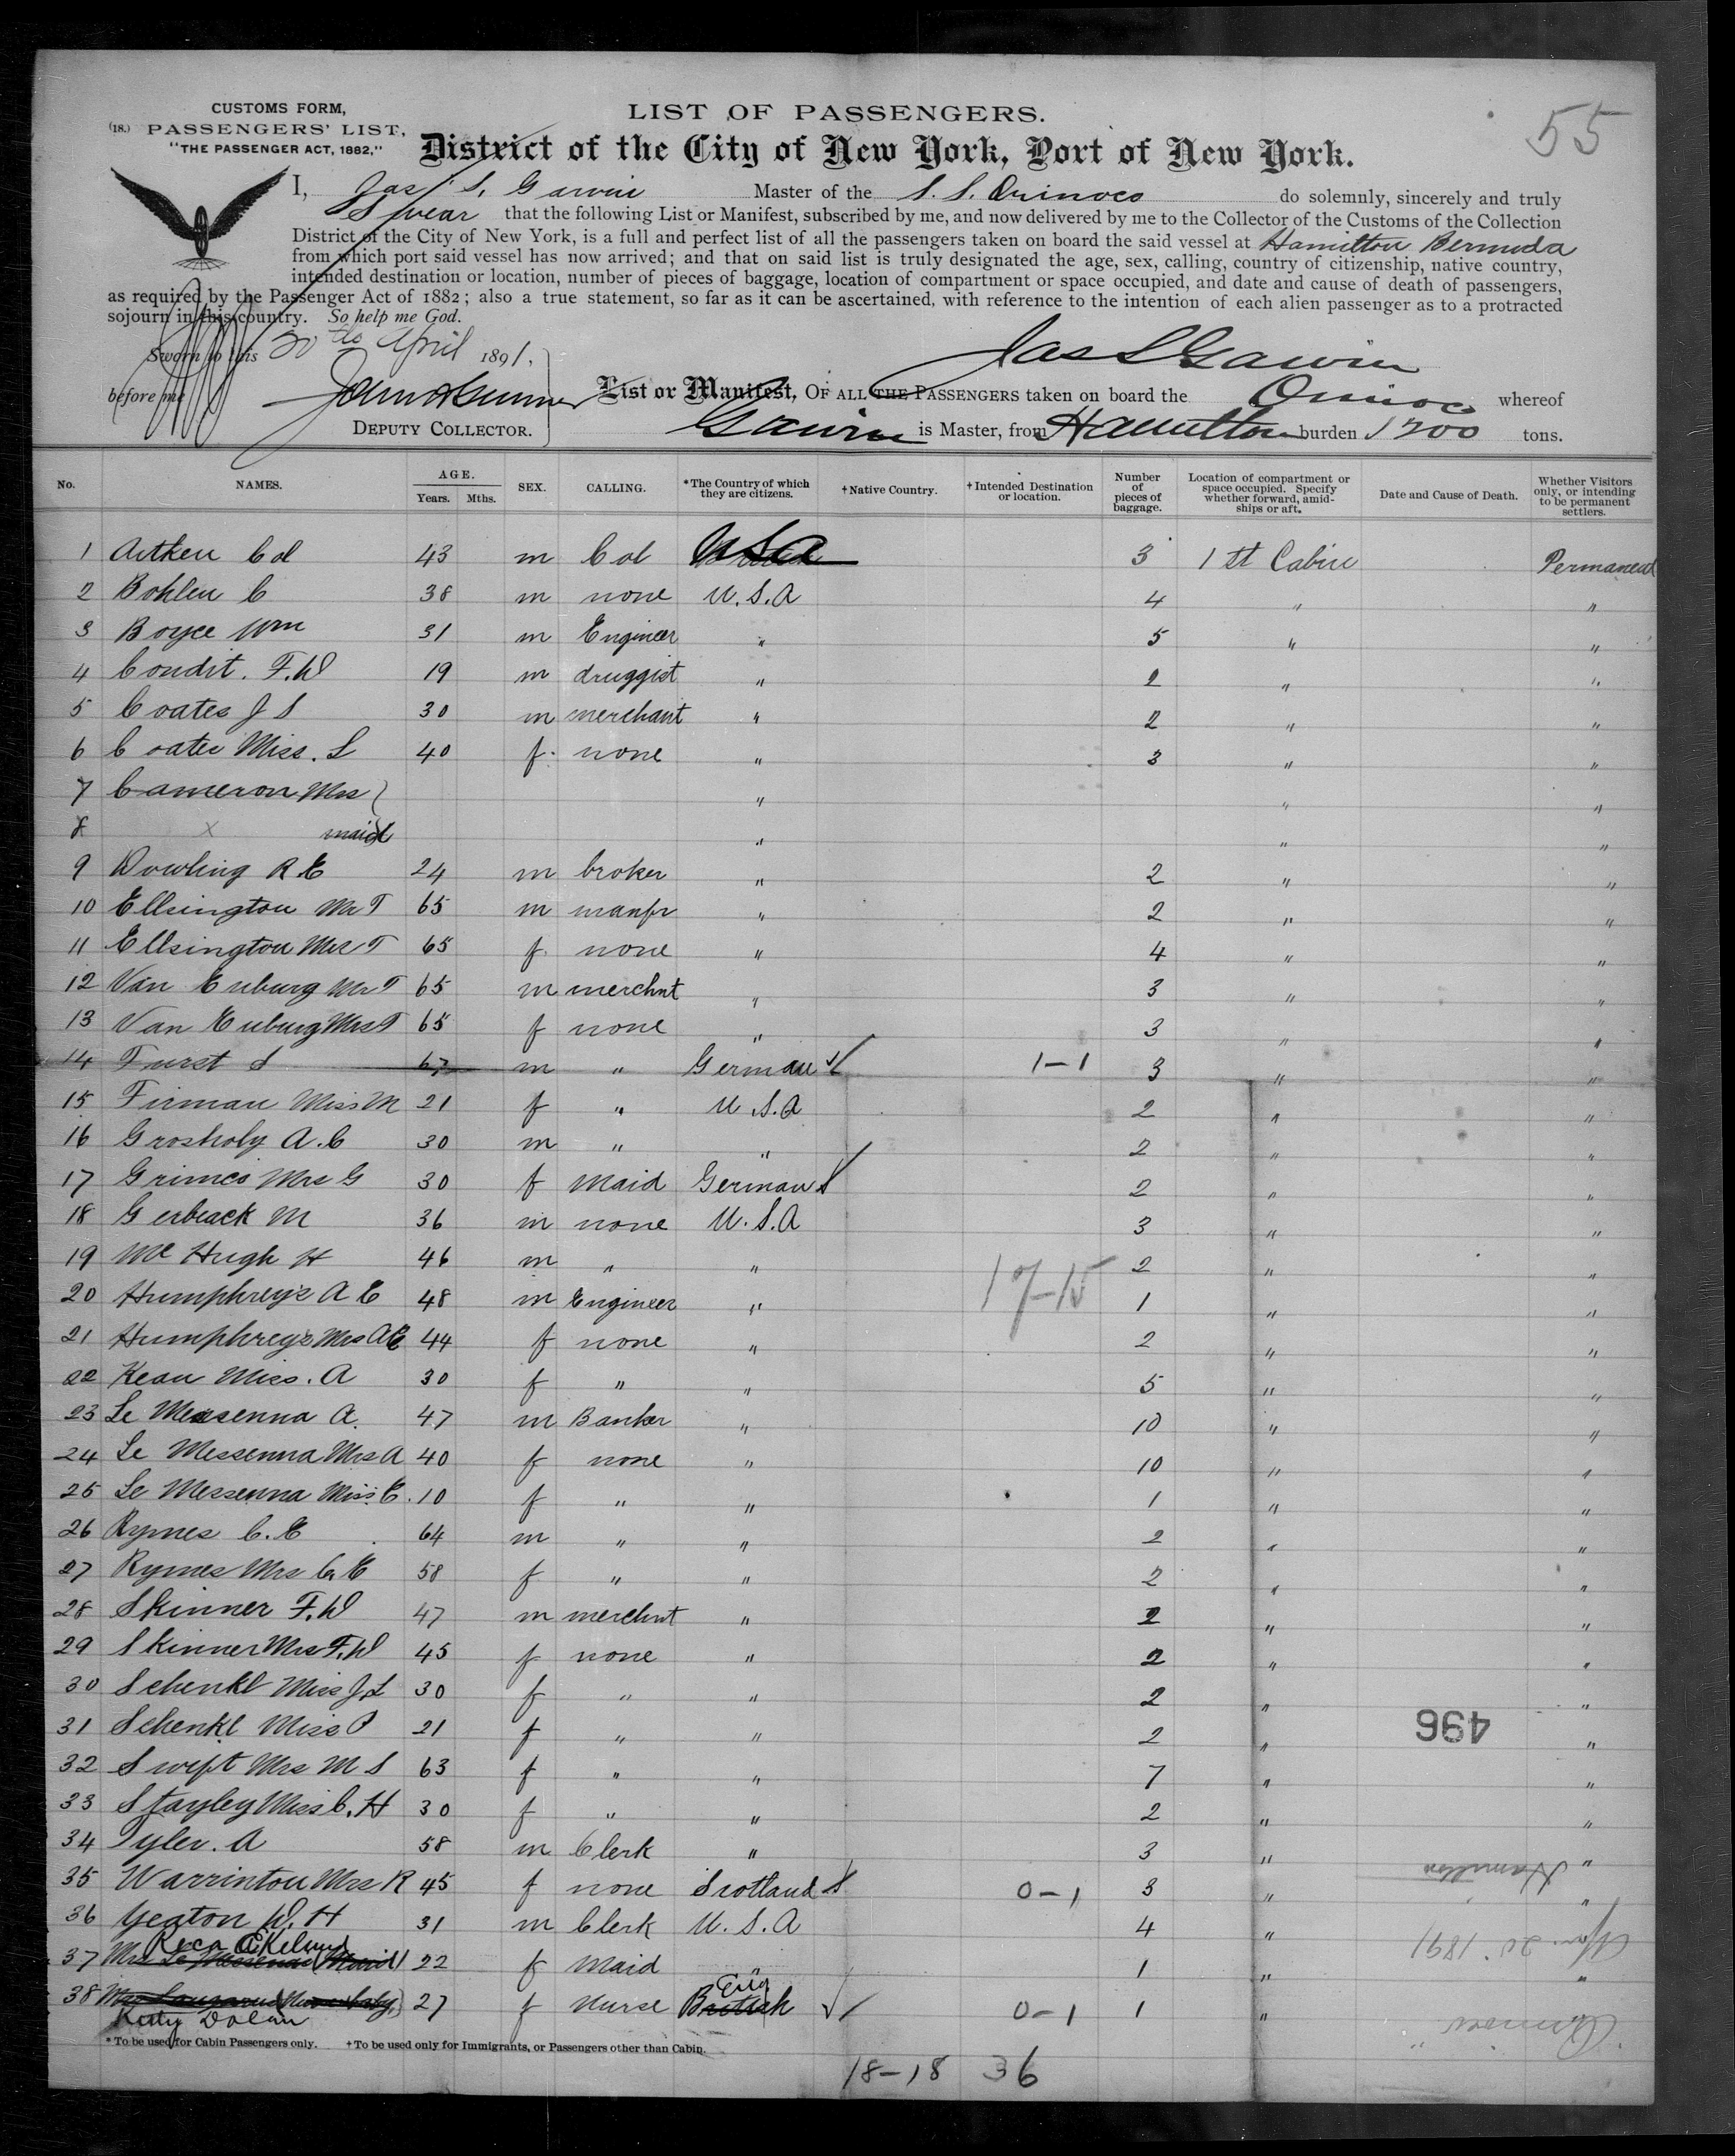 CUSTOMS FORM,
(18.) PASSENGERS' LIST,
"THE PASSENGER ACT, 1882."
LIST OF PASSENGERS.
55
District of the City of New York, Port of New York.
I, Jas. S. Garvin Master of the S. S. Orinoco do solemnly, sincerely and truly
Swear that the following List or Manifest, subscribed by me, and now delivered by me to the Collector of the Customs of the Collection
District of the City of New York, is a full and perfect list of all the passengers taken on board the said vessel at Hamilton Bermuda
from which port said vessel has now arrived; and that on said list is truly designated the age, sex, calling, country of citizenship, native country,
intended destination or location, number of pieces of baggage, location of compartment or space occupied, and date and cause of death of passengers,
as required by the Passenger Act of 1882; also a true statement, so far as it can be ascertained, with reference to the intention of each alien passenger as to a protracted
sojourn in this country. So help me God.
Sworn to this 20 th April 1891.
Jas S Garvin
before me
DEPUTY COLLECTOR.
List or Manifest, OF ALL THE PASSENGERS taken on board the Orinoco whereof
Garvin is Master, from Hamilton burden 1200 tons.
No. NAMES. AGE. Years. Mths. SEX. CALLING. *The Country of which they are citizens. †Native Country. †Intended Destination or location. Number of pieces of baggage. Location of compartment or space occupied. Specify whether forward, amidships or aft. Date and Cause of Death. Whether Visitors only, or intending to be permanent settlers.
1 Aitken Col 43 m Col USA 3 1st Cabin Permanent
2 Bohlen C 38 m none U.S.A 4 " "
3 Boyce Wm 31 m Engineer " 5 " "
4 Condit. F.W 19 m druggist " 2 " "
5 Coates J S 30 m merchant " 2 " "
6 Coates Miss. L 40 f. none " 3 " "
7 Cameron Mrs " " "
8 x maid " " "
9 Dowling R E 24 m broker " 2 " "
10 Ellsington Mr T 65 m manfr " 2 " "
11 Ellsington Mrs T 65 f none " 4 " "
12 Van Euburg Mr T 65 m merchnt " 3 " "
13 Van Euburg Mrs T 65 f none " 3 " "
14 Furst S 67 m " German 1-1 3 " "
15 Firman Miss M 21 f " U.S.A 2 " "
16 Grosholy A.C 30 m " " 2 " "
17 Grimes Mrs G 30 f maid German 2 " "
18 Gerbeack M 36 m none U.S.A 3 " "
19 Mc Hugh H 46 m " " 2 " "
17-15
20 Humphrey's A E 48 m Engineer " 1 " "
21 Humphrey's Mrs A E 44 f none " 2 " "
22 Kean Miss. A 30 f " " 5 " "
23 Le Messenna A. 47 m Banker " 10 " "
24 Le Messenna Mrs A 40 f none " 10 " "
25 Le Messenna Miss E. 10 f " " 1 " "
26 Rymes C. E 64 m " " 2 " "
27 Rymes Mrs C. E 58 f " " 2 " "
28 Skinner F.W 47 m merchnt " 2 " "
29 Skinner Mrs F.W 45 f none " 2 " "
30 Schenkl Miss J.L 30 f " " 2 " "
31 Schenkl Miss P 21 f " " 2 " "
496
32 Swift Mrs M S 63 f " " 7 " "
33 Stayley Miss C. H 30 f " " 2 " "
34 Tyler. A 58 m Clerk " 3 " "
35 Warrinton Mrs R 45 f none Scotland 0-1 3 " "
Hamilton
36 Yeaton W. H 31 m Clerk U.S.A 4 "
37 Mrs Le Messenna (Maid) 22 f maid " 1 " "
20 1891
38 27 f nurse British 0-1 1 "
Kitty Dolan
Orinoco
*To be used for Cabin Passengers only. †To be used only for Immigrants, or Passengers other than Cabin.
18-18 36